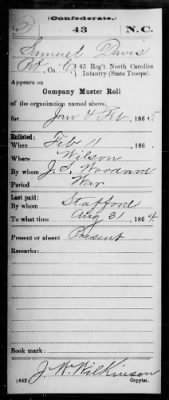 (Confederate.)
D 43 N.C.
Samuel Davis
Pvt, Co. C, 43 Reg't North Carolina
Infantry (State Troops).
Appears on
Company Muster Roll
of the organization named above,
for Jan & Feb, 1865
Enlisted:
When Feb 11, 186
Where Wilson
By whom J. S. Woodard
Period War
Last paid:
By whom Stafford
To what time Aug 31, 1864
Present or absent Present
Remarks:
Book mark:
J. W. Wilkinson
(642) Copyist.